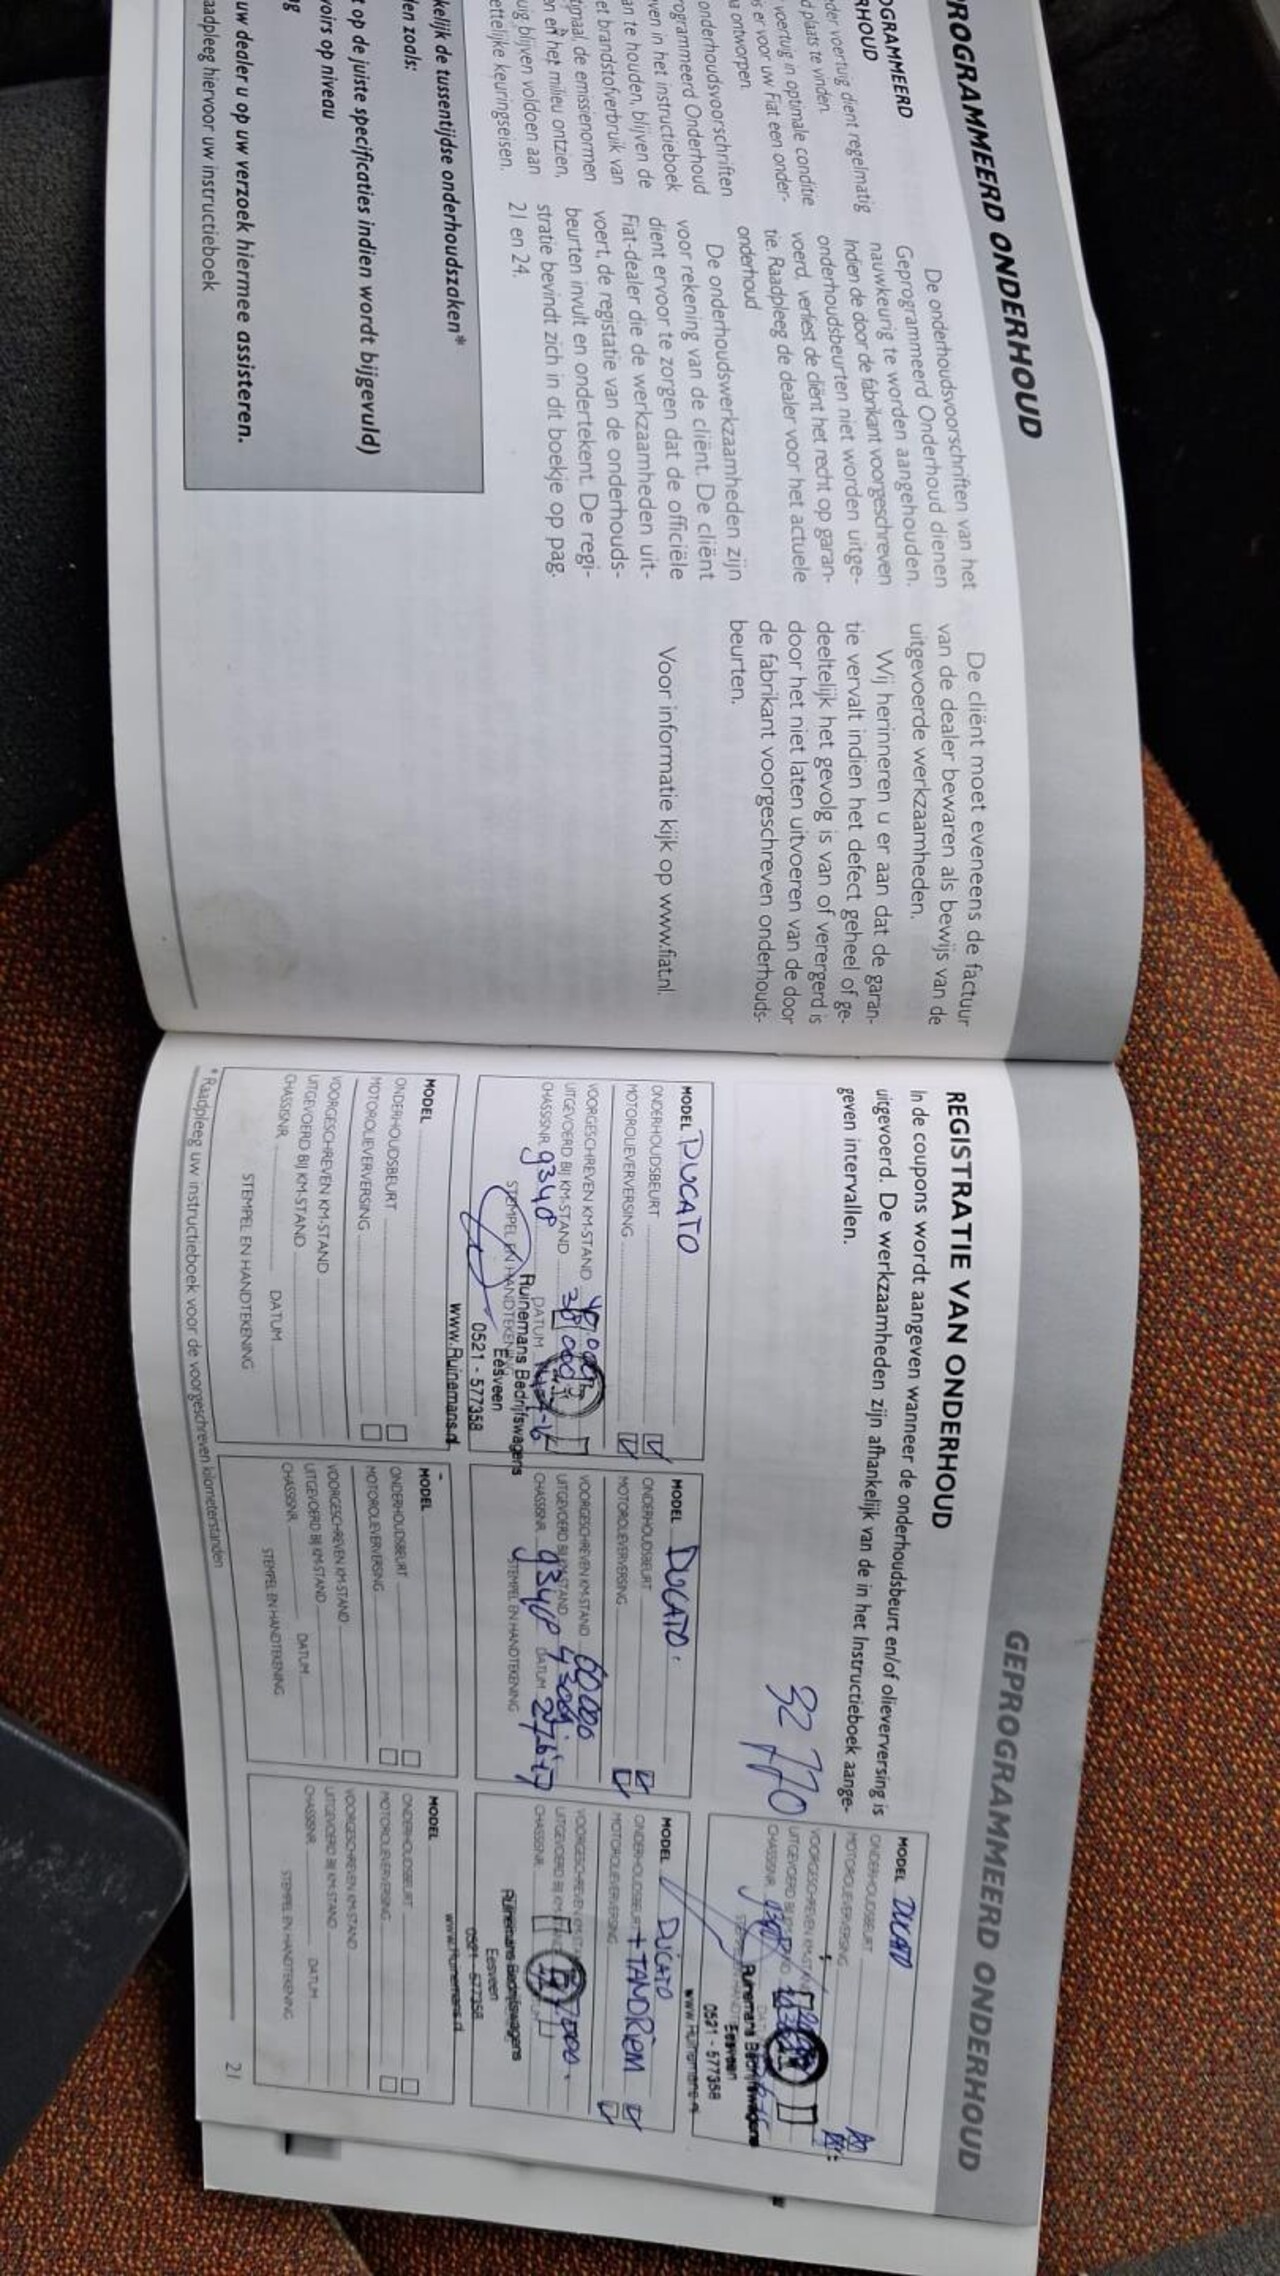 PROGRAMMEERD ONDERHOUD
OGRAMMEERD
RHOUD
der voertuig dient regelmatig
d plaats te vinden.
voertuig in optimale conditie
s er voor uw Fiat een onder-
a ontworpen.
onderhoudsvoorschriften
rogrammeerd Onderhoud
ven in het instructieboek
an te houden, blijven de
et brandstofverbruik van
tmaal, de emissienormen
n en het milieu ontzien,
uig blijven voldoen aan
ettelijke keuringseisen.
De onderhoudsvoorschriften van het
Geprogrammeerd Onderhoud dienen
nauwkeurig te worden aangehouden.
Indien de door de fabrikant voorgeschreven
onderhoudsbeurten niet worden uitge-
voerd, verliest de cliënt het recht op garan-
tie. Raadpleeg de dealer voor het actuele
onderhoud
De onderhoudswerkzaamheden zijn
voor rekening van de cliënt. De cliënt
dient ervoor te zorgen dat de officiële
Fiat-dealer die de werkzaamheden uit-
voert, de registatie van de onderhouds-
beurten invult en ondertekent. De regi-
stratie bevindt zich in dit boekje op pag.
21 en 24.
De cliënt moet eveneens de factuur
van de dealer bewaren als bewijs van de
uitgevoerde werkzaamheden.
Wij herinneren u er aan dat de garan-
tie vervalt indien het defect geheel of ge-
deeltelijk het gevolg is van of verergerd is
door het niet laten uitvoeren van de door
de fabrikant voorgeschreven onderhouds-
beurten.
Voor informatie kijk op www.fiat.nl.
kelijk de tussentijdse onderhoudszaken*
len zoals:
t op de juiste specificaties indien wordt bijgevuld)
voirs op niveau
ng
uw dealer u op uw verzoek hiermee assisteren.
aadpleeg hiervoor uw instructieboek
GEPROGRAMMEERD ONDERHOUD
REGISTRATIE VAN ONDERHOUD
In de coupons wordt aangeven wanneer de onderhoudsbeurt en/of olieverversing is
uitgevoerd. De werkzaamheden zijn afhankelijk van de in het Instructieboek aange-
geven intervallen.
32770
MODEL DUCATO
ONDERHOUDSBEURT
MOTOROLIEVERVERSING
VOORGESCHREVEN KM-STAND
UITGEVOERD BIJ KM-STAND
CHASSISNR.
Ruinemans Bedrijfswagens
Eesveen
0521 - 577358
www.Ruinemans.nl
MODEL DUCATO
ONDERHOUDSBEURT
MOTOROLIEVERVERSING
VOORGESCHREVEN KM-STAND 40.000
UITGEVOERD BIJ KM-STAND
CHASSISNR. 9340 DATUM
STEMPEL EN HANDTEKENING
Ruinemans Bedrijfswagens
Eesveen
0521 - 577358
www.Ruinemans.nl
MODEL DUCATO.
ONDERHOUDSBEURT
MOTOROLIEVERVERSING
VOORGESCHREVEN KM-STAND
UITGEVOERD BIJ KM-STAND
CHASSISNR. 9340 DATUM
STEMPEL EN HANDTEKENING
MODEL DUCATO
ONDERHOUDSBEURT + TANDRIEM
MOTOROLIEVERVERSING
VOORGESCHREVEN KM-STAND
UITGEVOERD BIJ KM-STAND
CHASSISNR.
Ruinemans Bedrijfswagens
Eesveen
0521 - 577358
www.Ruinemans.nl
MODEL
ONDERHOUDSBEURT
MOTOROLIEVERVERSING
VOORGESCHREVEN KM-STAND
UITGEVOERD BIJ KM-STAND
CHASSISNR. DATUM
STEMPEL EN HANDTEKENING
MODEL
ONDERHOUDSBEURT
MOTOROLIEVERVERSING
VOORGESCHREVEN KM-STAND
UITGEVOERD BIJ KM-STAND
CHASSISNR. DATUM
STEMPEL EN HANDTEKENING
MODEL
ONDERHOUDSBEURT
MOTOROLIEVERVERSING
VOORGESCHREVEN KM-STAND
UITGEVOERD BIJ KM-STAND
CHASSISNR. DATUM
STEMPEL EN HANDTEKENING
* Raadpleeg uw instructieboek voor de voorgeschreven kilometerstanden
21